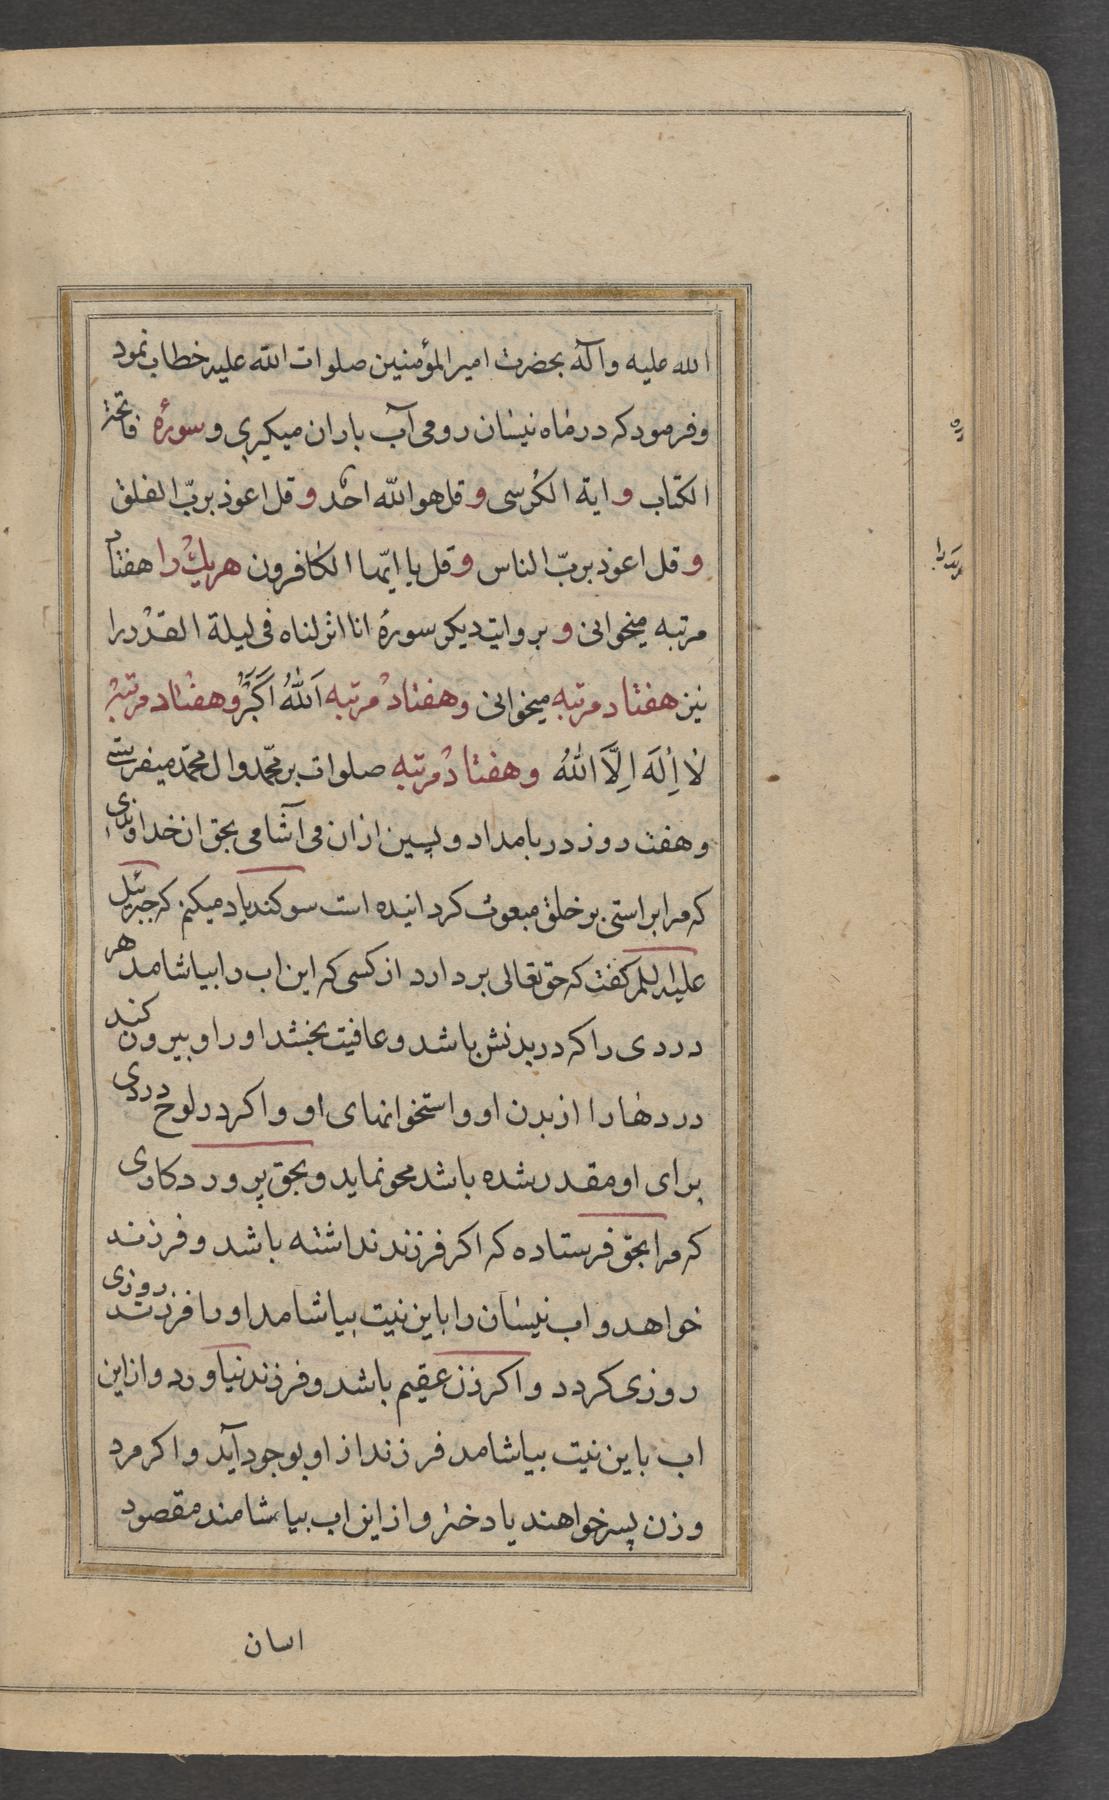 الله علیه وآله بحضرت امیرالمؤمنین صلوات الله علیه خطاب نمود
وفرمود که در ماه نیسان رومی آب باران میکیری و سورهٔ فاتحة
الکتاب و ایة الکرسی و قل هو الله احد و قل اعوذ بربّ الفلق
و قل اعوذ بربّ الناس و قل یا ایّها الکافرون هریك را هفتاد
مرتبه میخوانی و بروایت دیکر سورهٔ انا انزلناه فی لیلة القدر را
نیز هفتاد مرتبه میخوانی و هفتاد مرتبه اَللهُ اَکْبَرُ و هفتاد مرتبه
لٰا اِلٰهَ اِلَّا اللهُ و هفتاد مرتبه صلوات بر محمّد وال محمّد میفرستی
و هفت روز در بامداد و پسین ازان می آشامی بحق ان خداوندی
که مرا براستی بر خلق مبعوث کردانیده است سوکند یاد میکنم که جبرئیل
علیه السلم کفت که حق تعالی بردارد از کسی که این اب را بیاشامد هر
دردی را که در بدنش باشد و عافیت بخشد او را و بیرون کند
دردها را از بدن او و استخوانهای او و اکر در لوح دردی
برای او مقدر شده باشد محو نماید و بحق پروردکاری
که مرا بحق فرستاده که اکر فرزند نداشته باشد و فرزند
خواهد و اب نیسان را باین نیت بیاشامد او را فرزند روزی
روزی کردد و اکر زن عقیم باشد و فرزند نیاورد و از این
اب باین نیت بیاشامد فرزند از او بوجود آید و اکر مرد
و زن پسر خواهند یا دختر و از این اب بیاشامند مقصود
اسان